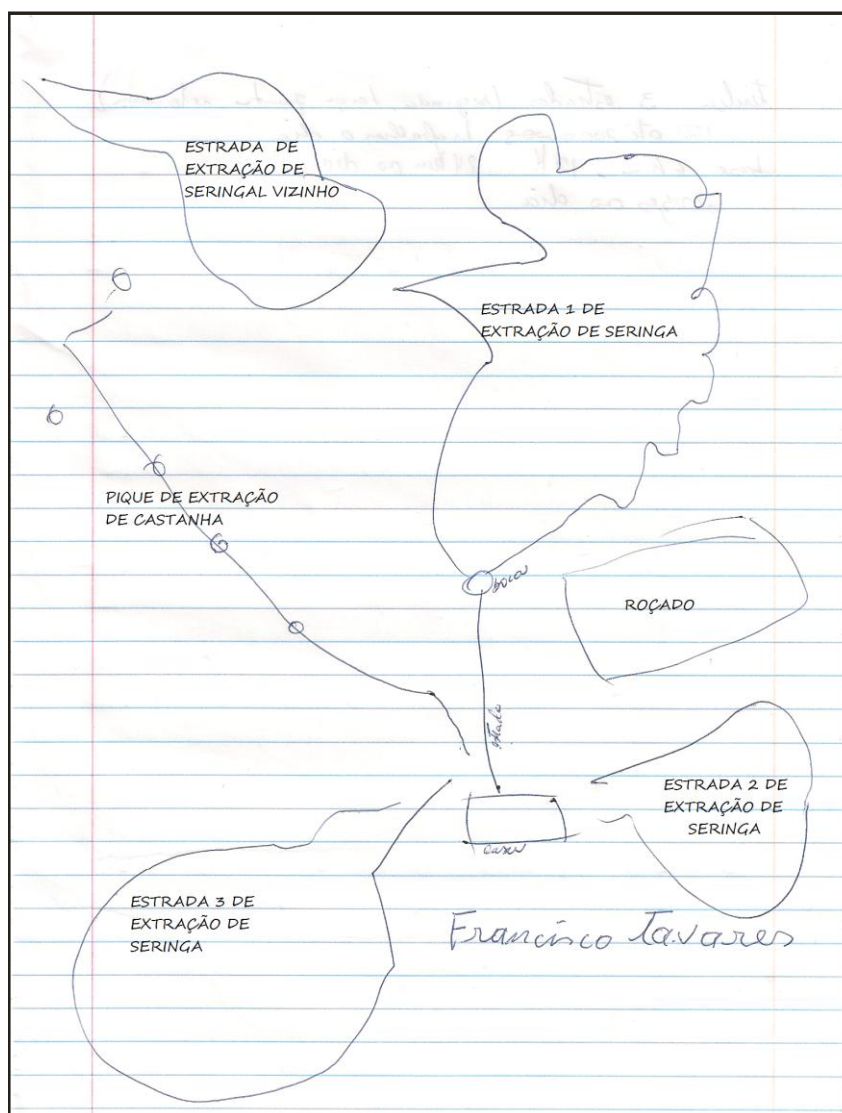 ESTRADA DE
EXTRAÇÃO DE
SERINGAL VIZINHO
ESTRADA 1 DE
EXTRAÇÃO DE SERINGA
PIQUE DE EXTRAÇÃO
DE CASTANHA
boca
ROÇADO
estrada
ESTRADA 2 DE
EXTRAÇÃO DE
SERINGA
casa
ESTRADA 3 DE
EXTRAÇÃO DE
SERINGA
Francisco Tavares